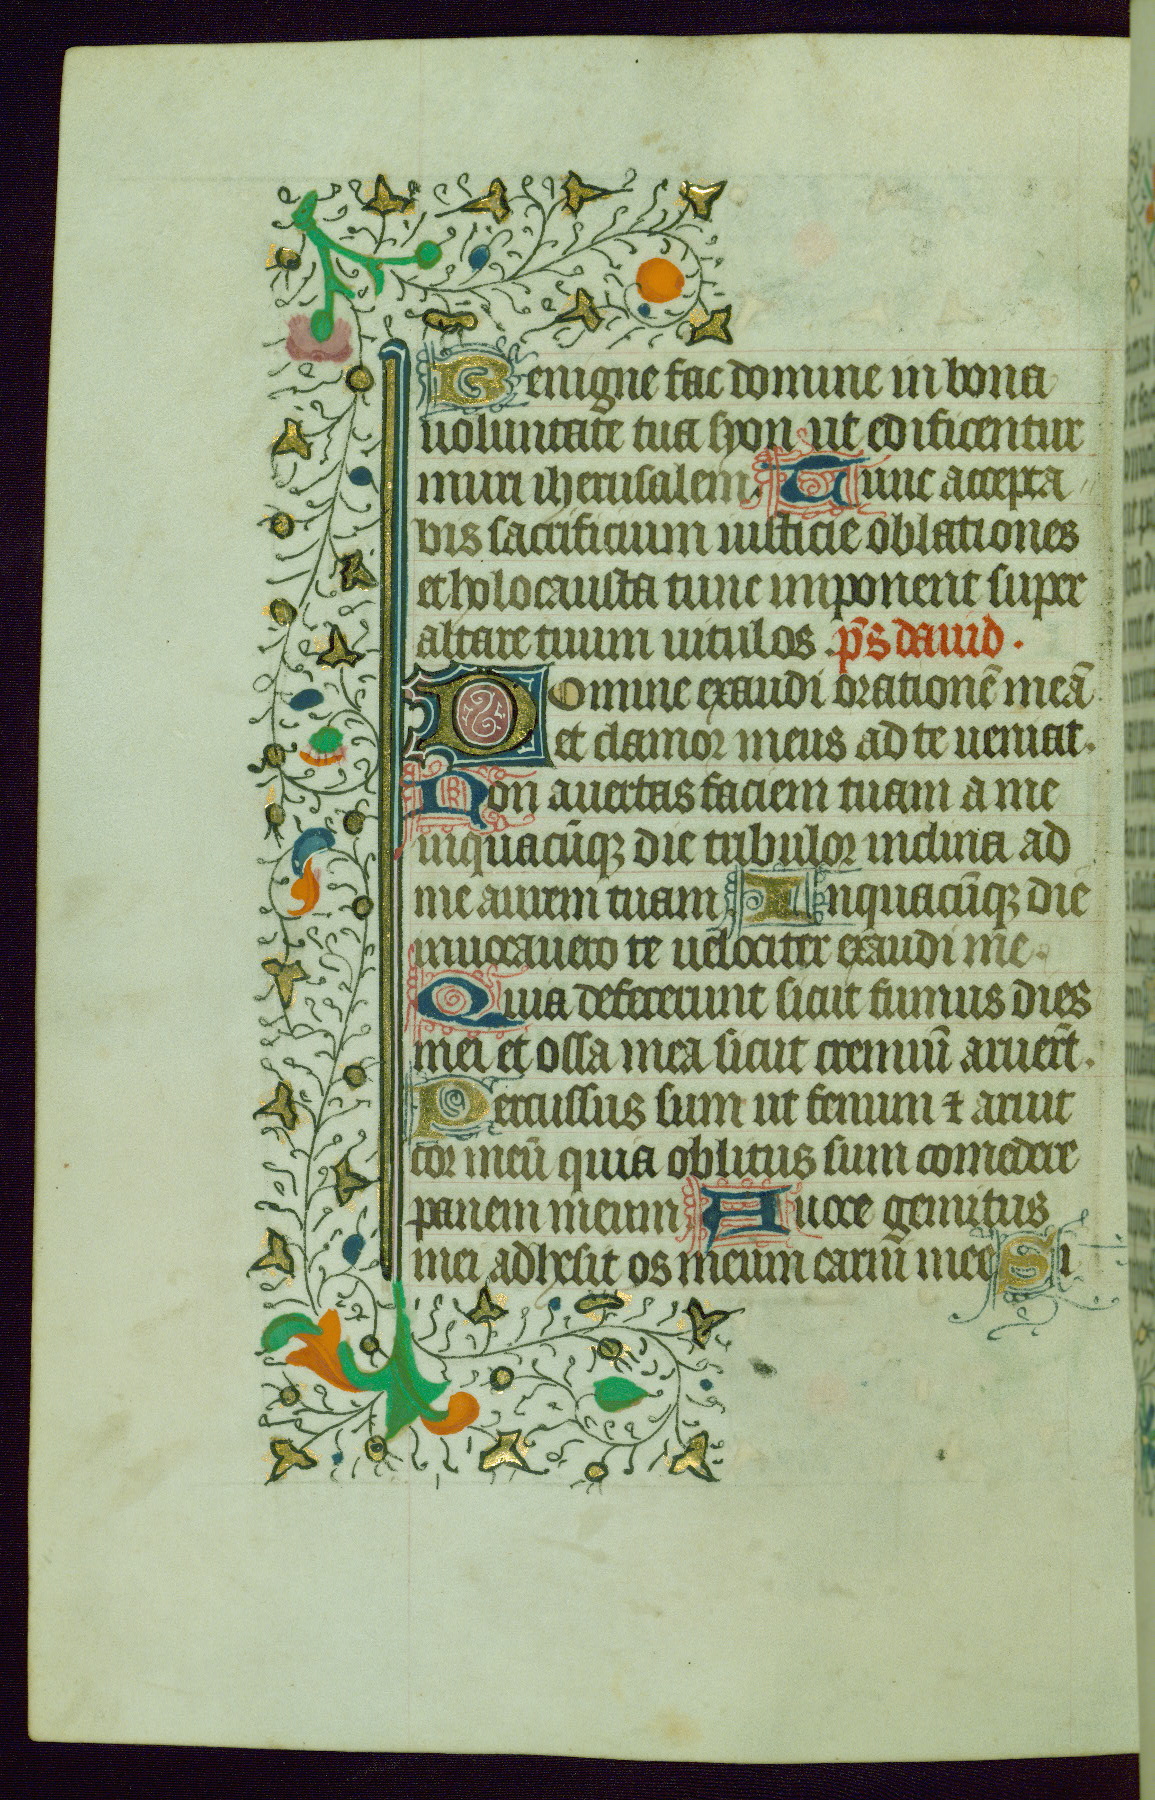 Benigne fac domine in bona
uoluntate tua syon ut edificentur
muri iherusalem. Tunc accepta
bis sacrificium iusticie oblationes
et holocausta tunc imponent super
altare tuum uitulos. p̄s dauid.
Domine exaudi orationē meā
et clamor meus ad te ueniat.
Non auertas faciem tuam a me
inquacūqꝫ die tribulor inclina ad
me aurem tuam Inquacūqꝫ die
inuocauero te uelociter exaudi me.
Quia defecerunt sicut fumus dies
mei et ossa mea sicut cremiū aruert̄.
Percussus sum ut fenum ⁊ aruit
cor meū quia oblitus sum comedere
panem meum A uoce gemitus
mei adhesit os meum carni mee Si